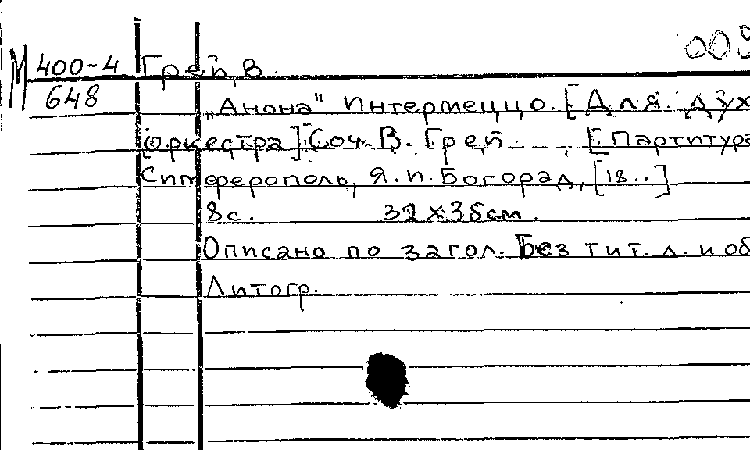 009
М 400-4 Грей, В.
648
„Анона" Интермеццо. [Для. дух
оркестра] Соч. В. Грей ... [Партитура
Симферополь, Я.п. Богорад, [18..]
8с. 32х36см.
Описано по загол. Без тит. л. и об
Литогр.